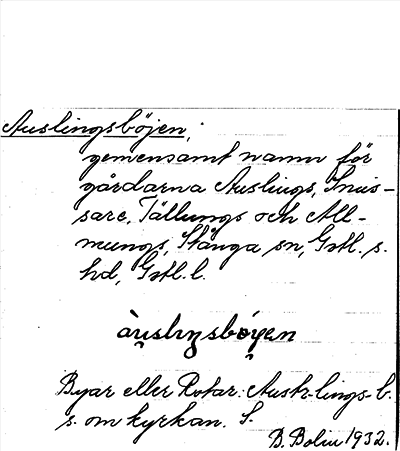 Auslingsböjen;
gemensamt namn för
gårdarna Auslings, Snus-
sare, Tällungs och All-
mungs, Stånga sn, Gotl. s.
hd, Gotl. l.
àu̯slıŋsbo̯i̯en
Byar eller Rotar: Austr-lings-b.
s. om kyrkan. S.
B. Bolin 1932.